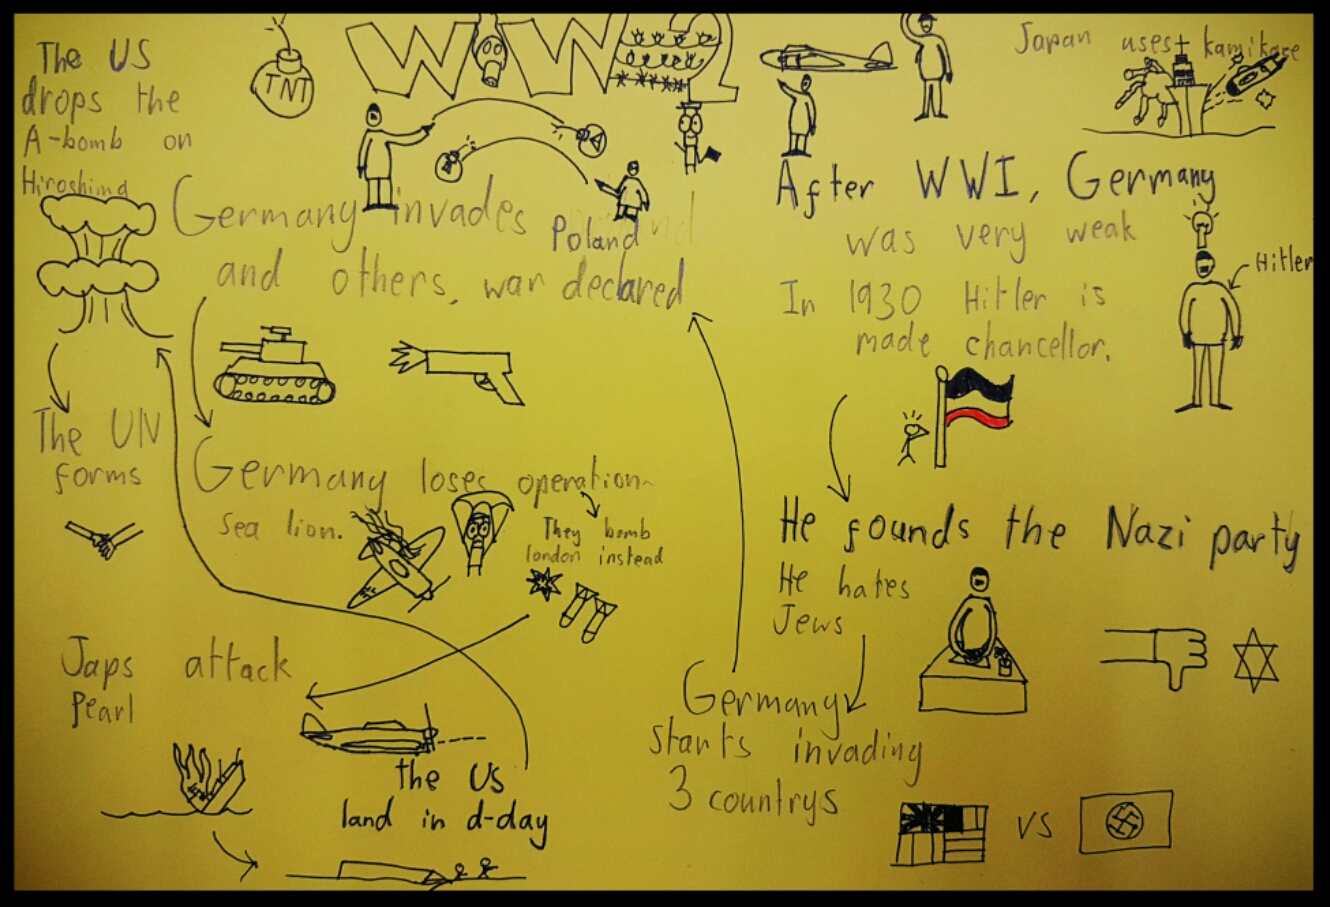 WW2
TNT
The US
drops the
A-bomb on
Hiroshima
Japan uses kamikaze
After WWI, Germany
was very weak
In 1930 Hitler is
made chancellor.
Hitler
He founds the Nazi party
He hates
Jews
Germany
starts invading
3 countrys
VS
Germany invades Poland
and others, war declared
Germany loses operation
Sea lion.
They bomb
london instead
Japs attack
Pearl
the Us
land in d-day
The UN
forms